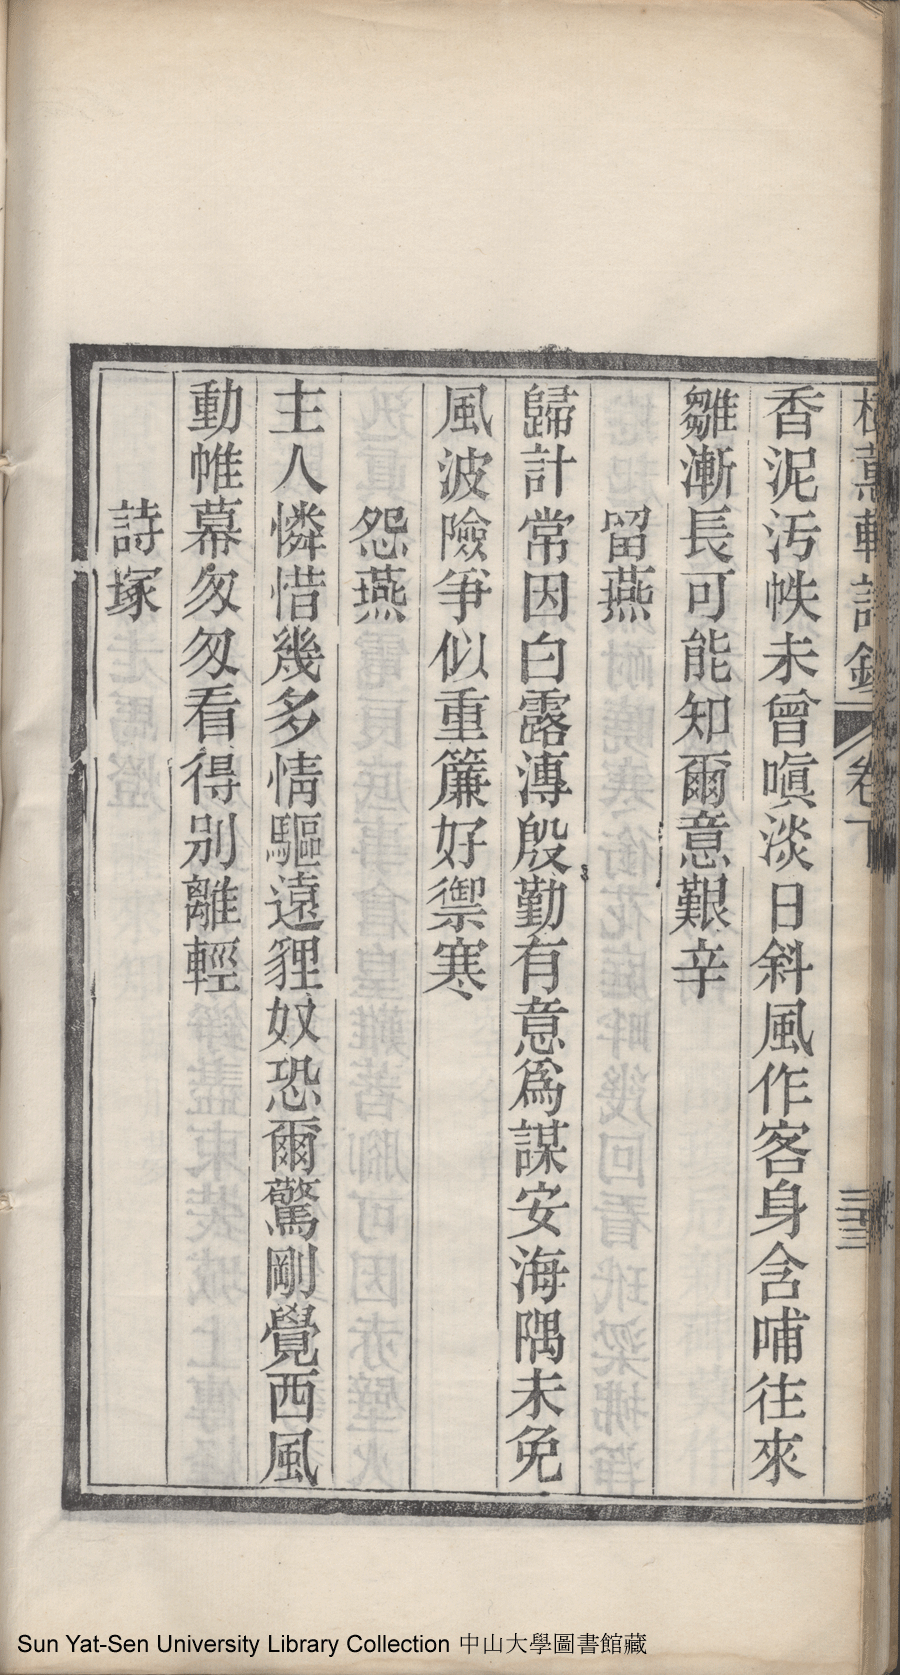 軒詩鈔 卷下 三十三
香泥汚帙未曾嗔淡日斜風作客身含哺往來
雛漸長可能知爾意艱辛
留燕
歸計常因白露漙殷勤有意爲謀安海隅未免
風波險爭似重簾好禦寒
怨燕
主人憐惜幾多情驅遠貍奴恐爾驚剛覺西風
動帷幕匆匆看得別離輕
詩塚
Sun Yat-Sen University Library Collection 中山大學圖書館藏